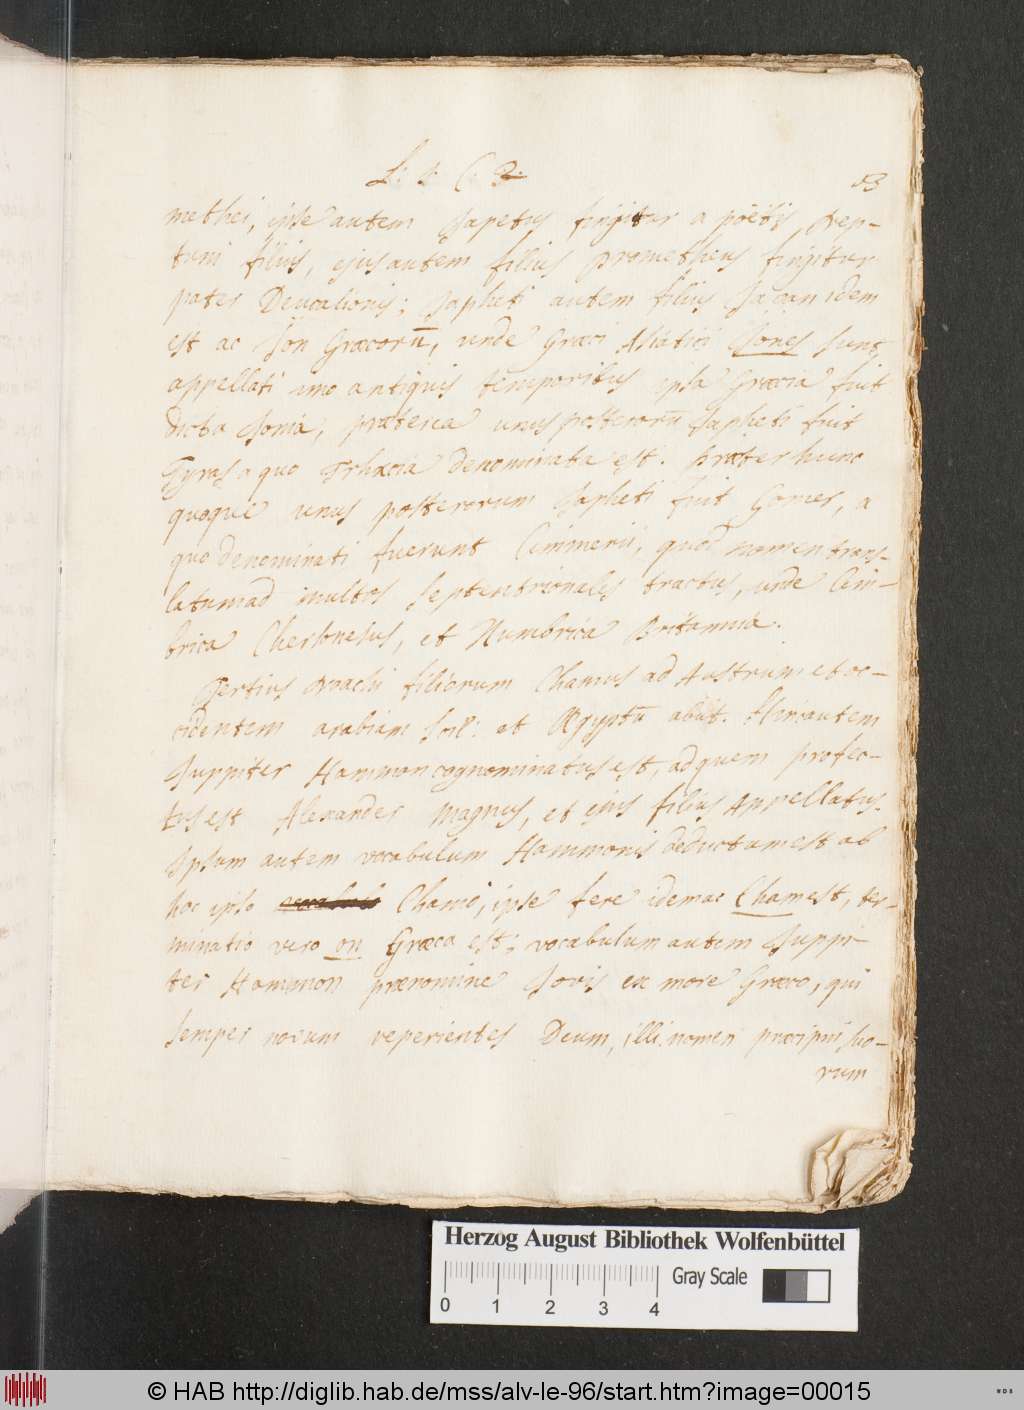 L: 1: C: 2. 13
methei, ipse autem Japetus fingitur a poëtis Nep-
tuni filius, ejus autem filius Prometheus fingitur
pater Deucalionis; Japheti autem filius Javan idem
est ac Jon Græcorū, unde Græci Asiatici Jones sunt
appellati imo antiquis temporibus ipsa Græcia fuit
dicta Jonia, præterea unus posterorū Japheti fuit
Tyras a quo Trhacia denominata est. Præter hunc
quoque unus posterorum Japheti fuit Gomer, a
quo denominati fuerunt Cimmerii, quod nomen trans-
latum ad multos septentrionales tractus, unde Cim-
brica Chersonesus, et Numbrica Britannia.
Tertius Noachi filiorum Chamus ad Austrum et oc-
cidentem arabiam scil: et Ægyptū abiit. Hinc autem
Juppiter Hammon cognominatus est, ad quem profec-
tus est Alexander Magnus, et ejus filius Appellatus.
Ipsum autem vocabulum Hammonis deductum est ab
hoc ipso Chamo, ipse fere idem ac Cham est, ter-
minatio vero on Græca est; vocabulum autem Juppi-
ter Hammon prænomine Jovis ex more Græco, qui
semper novum reperientes Deum, illi nomen præcipui suo-
rum
Herzog August Bibliothek Wolfenbüttel
Gray Scale
0 1 2 3 4
© HAB http://diglib.hab.de/mss/alv-le-96/start.htm?image=00015